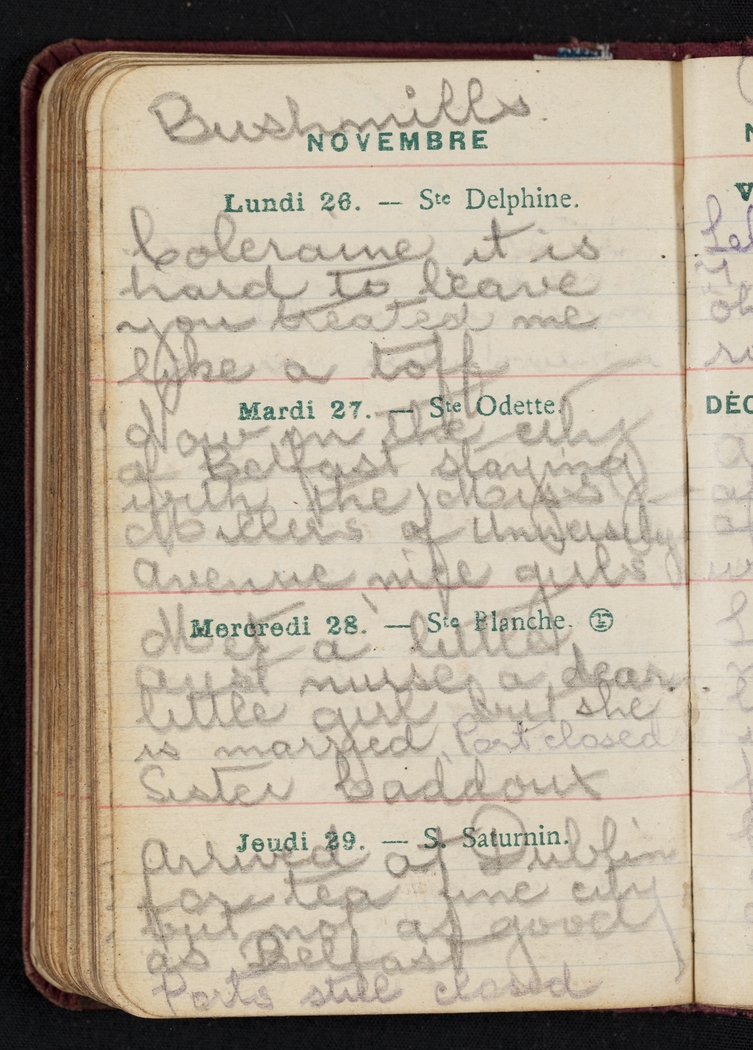 Bushmills
NOVEMBRE
Lundi 26. — Ste Delphine.
Coleraine it is
hard to leave
you treated me
like a toff
Mardi 27. — Ste Odette.
Now in the city
of Belfast staying
with the Miss
Millers of University
Avenue nice girls
Mercredi 28. — Ste Blanche.
Met a little
aust nurse a dear
little girl but she
is married Port closed
Sister Caddoux
Jeudi 29. — S. Saturnin.
Arrived at Dublin
for tea fine city
but not as good
as Belfast
Ports still closed
DÉC